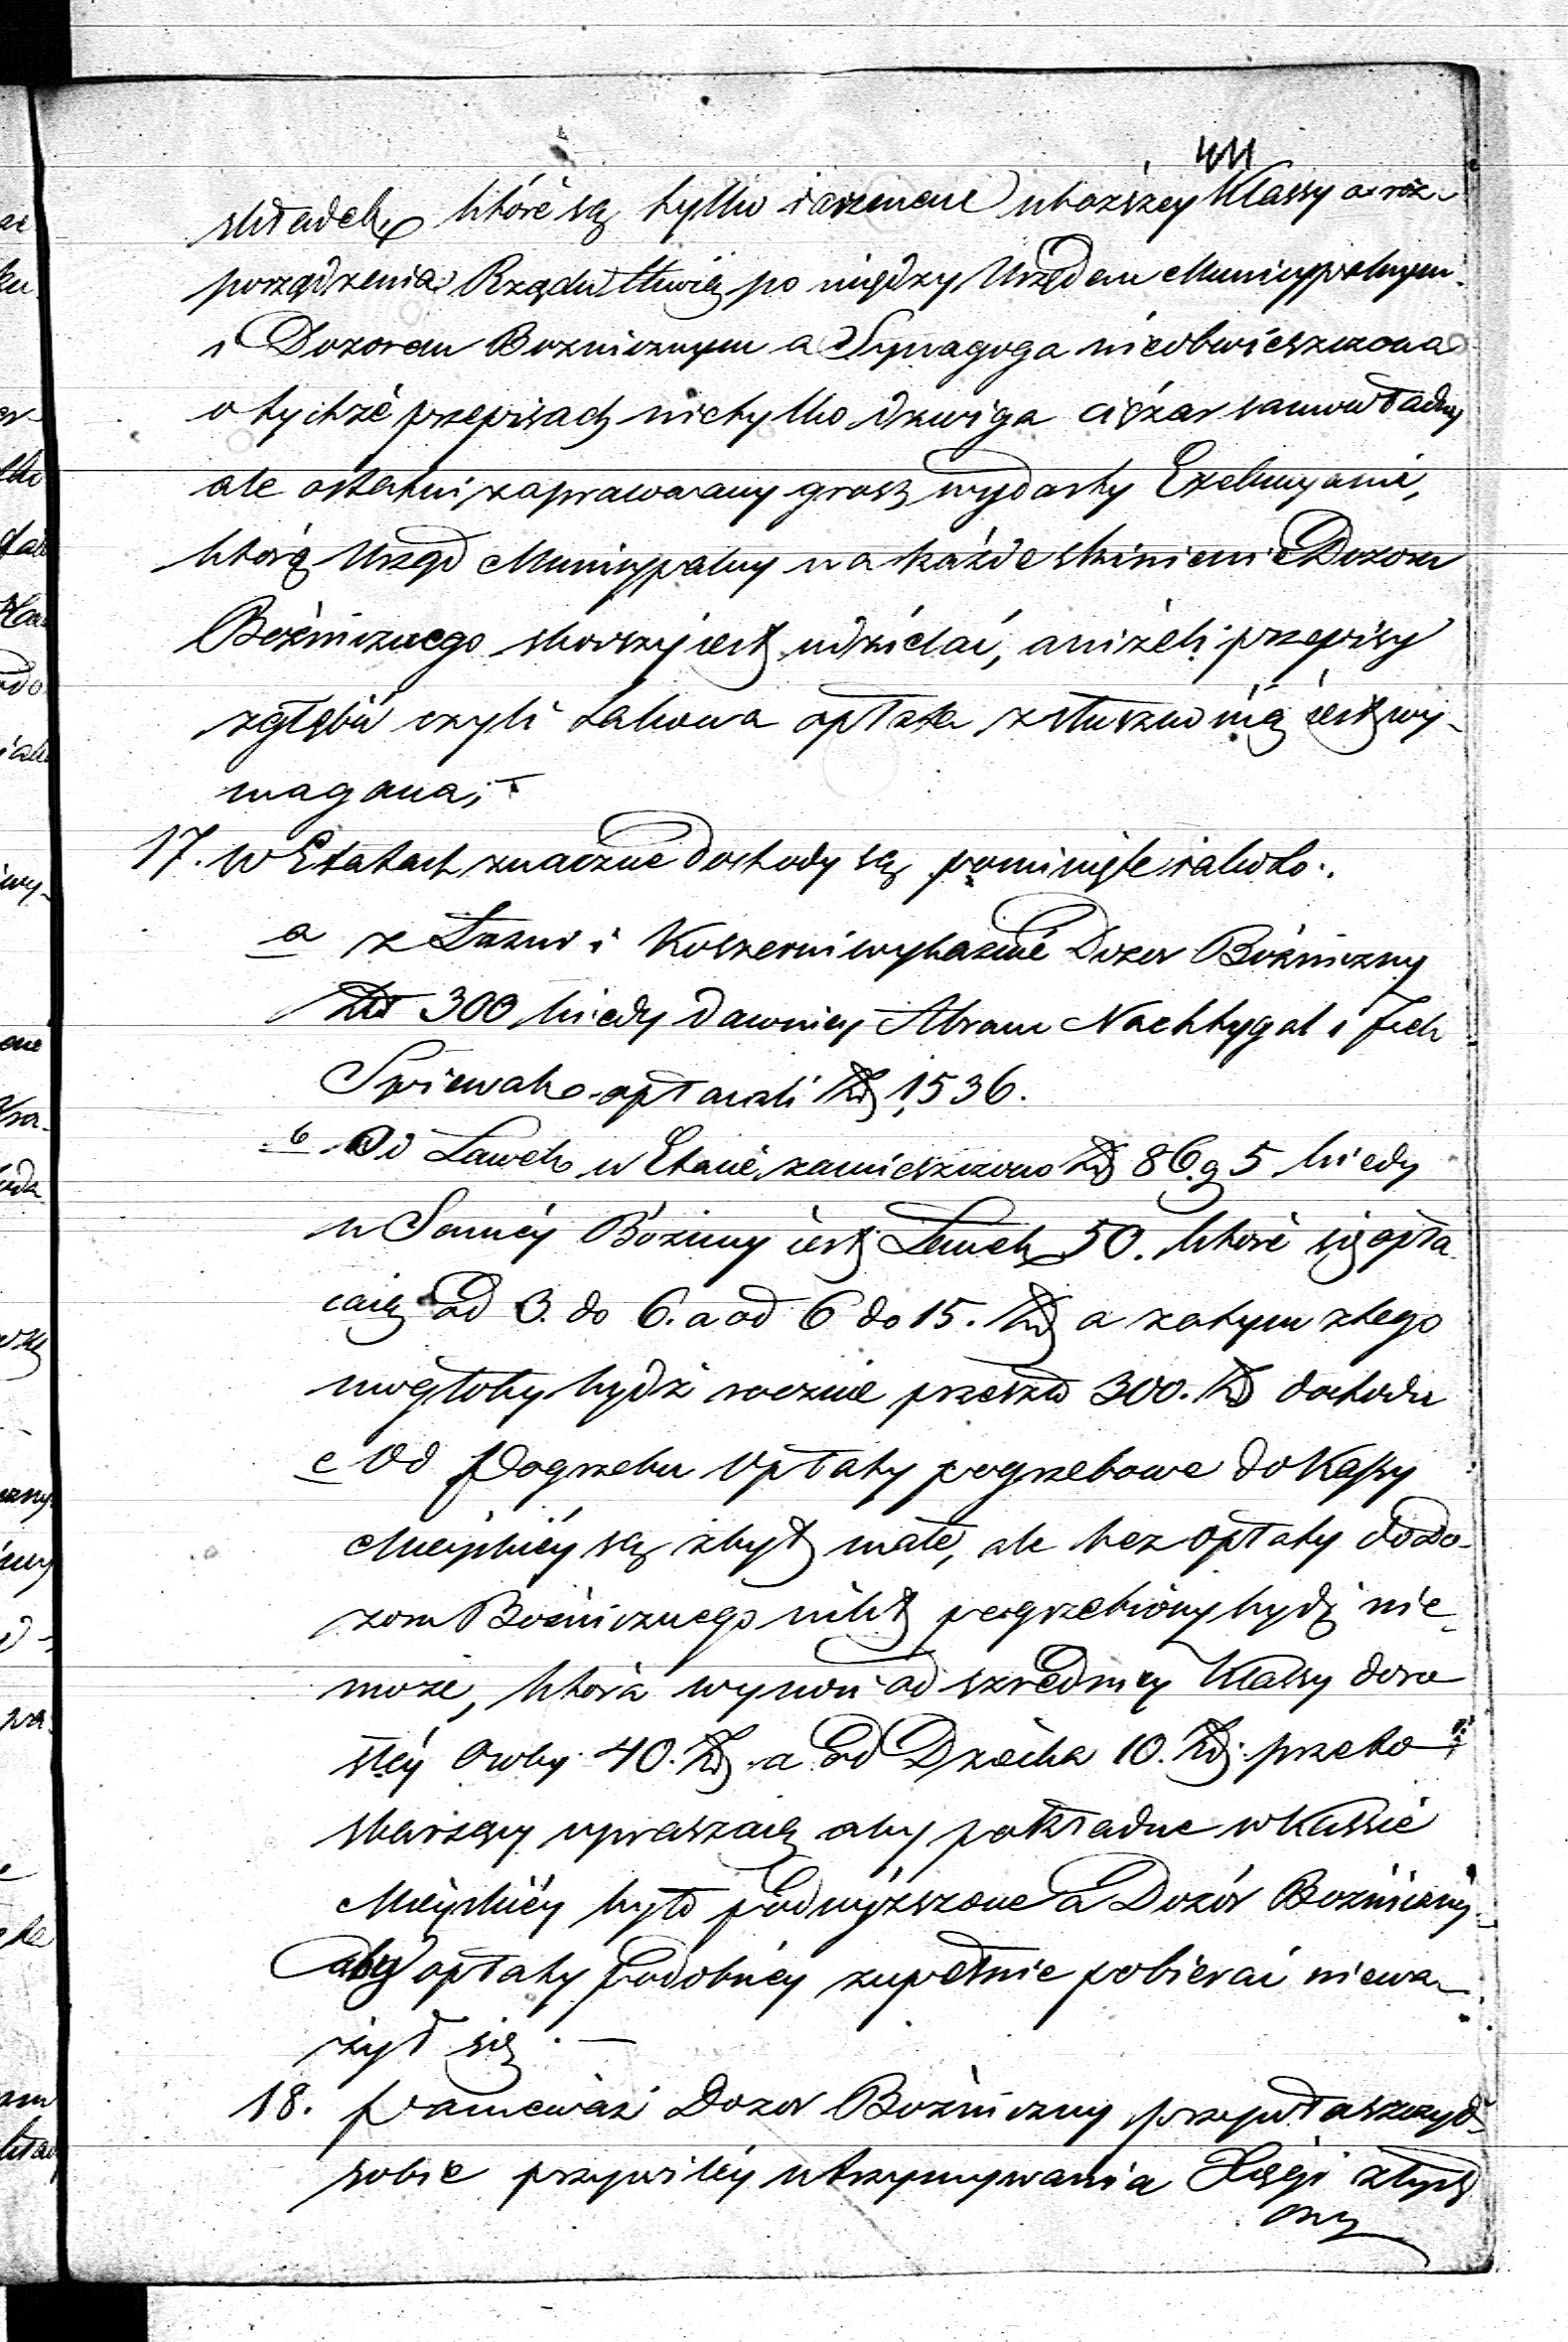 składek, które są tylko iarzmem uboższey Klassy a roz-
porządzenia Rządu tkwią po między Urzędem Municypalnym
i Dozorem Boznicznym a Synagoga nieobwieszczona
o tychże przepisach nietylko dzwiga ciężar samowładny
ale ostatni zapracowany grosz wydarty Exekucyami,
którą Urząd Municypalny na każde skinienie Dozoru
Bożnicznego skorszy iest udzielać, aniżeli przepisy
zgłębić czyli takowa opłata z słusznością iest wy-
magana;
17. W Etatach znaczne dochody są pominięte iako to:
a z Łazni i Koszerni wykazuie Dozor Bóżniczny
Złt 300 kiedy dawniey Abram Nachtygal i Icek
Spiewak opłacali Zł 1536.
b Od Ławek w Etacie zamieszczono Zł 86. g 5 kiedy
w Samey Bóżnicy iest Ławek 50. które się opła
caią od 3. do 6. a od 6 do 15. Zł a zatym z tego
mogłoby bydź rocznie przeszło 300. Zł dochodu
c Od Pogrzebu opłaty pogrzebowe do Kassy
Mieyskiey są zbyt małe, ale bez opłaty do Do-
zoru Bożnicznego nikt pogrzebiony bydź nie-
może, która wynosi od szredniey Klassy doro
słey Osoby 40. Zł a od Dziecka 10. Zł: przeto
skarzący upraszaią aby pokładne w Kassie
Mieyskiey było podwyższone a Dozór Bożniczny
aby opłaty podobney zupełnie pobierać niewa-
żył się. —
18. Ponieważ Dozor Bożniczny przywłaszczył
sobie przywiley utrzymywania Xsięgi złych